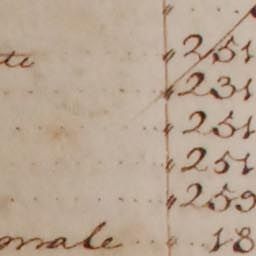 te " 251
" 231
" 251
" 251
" 259
orale " 18